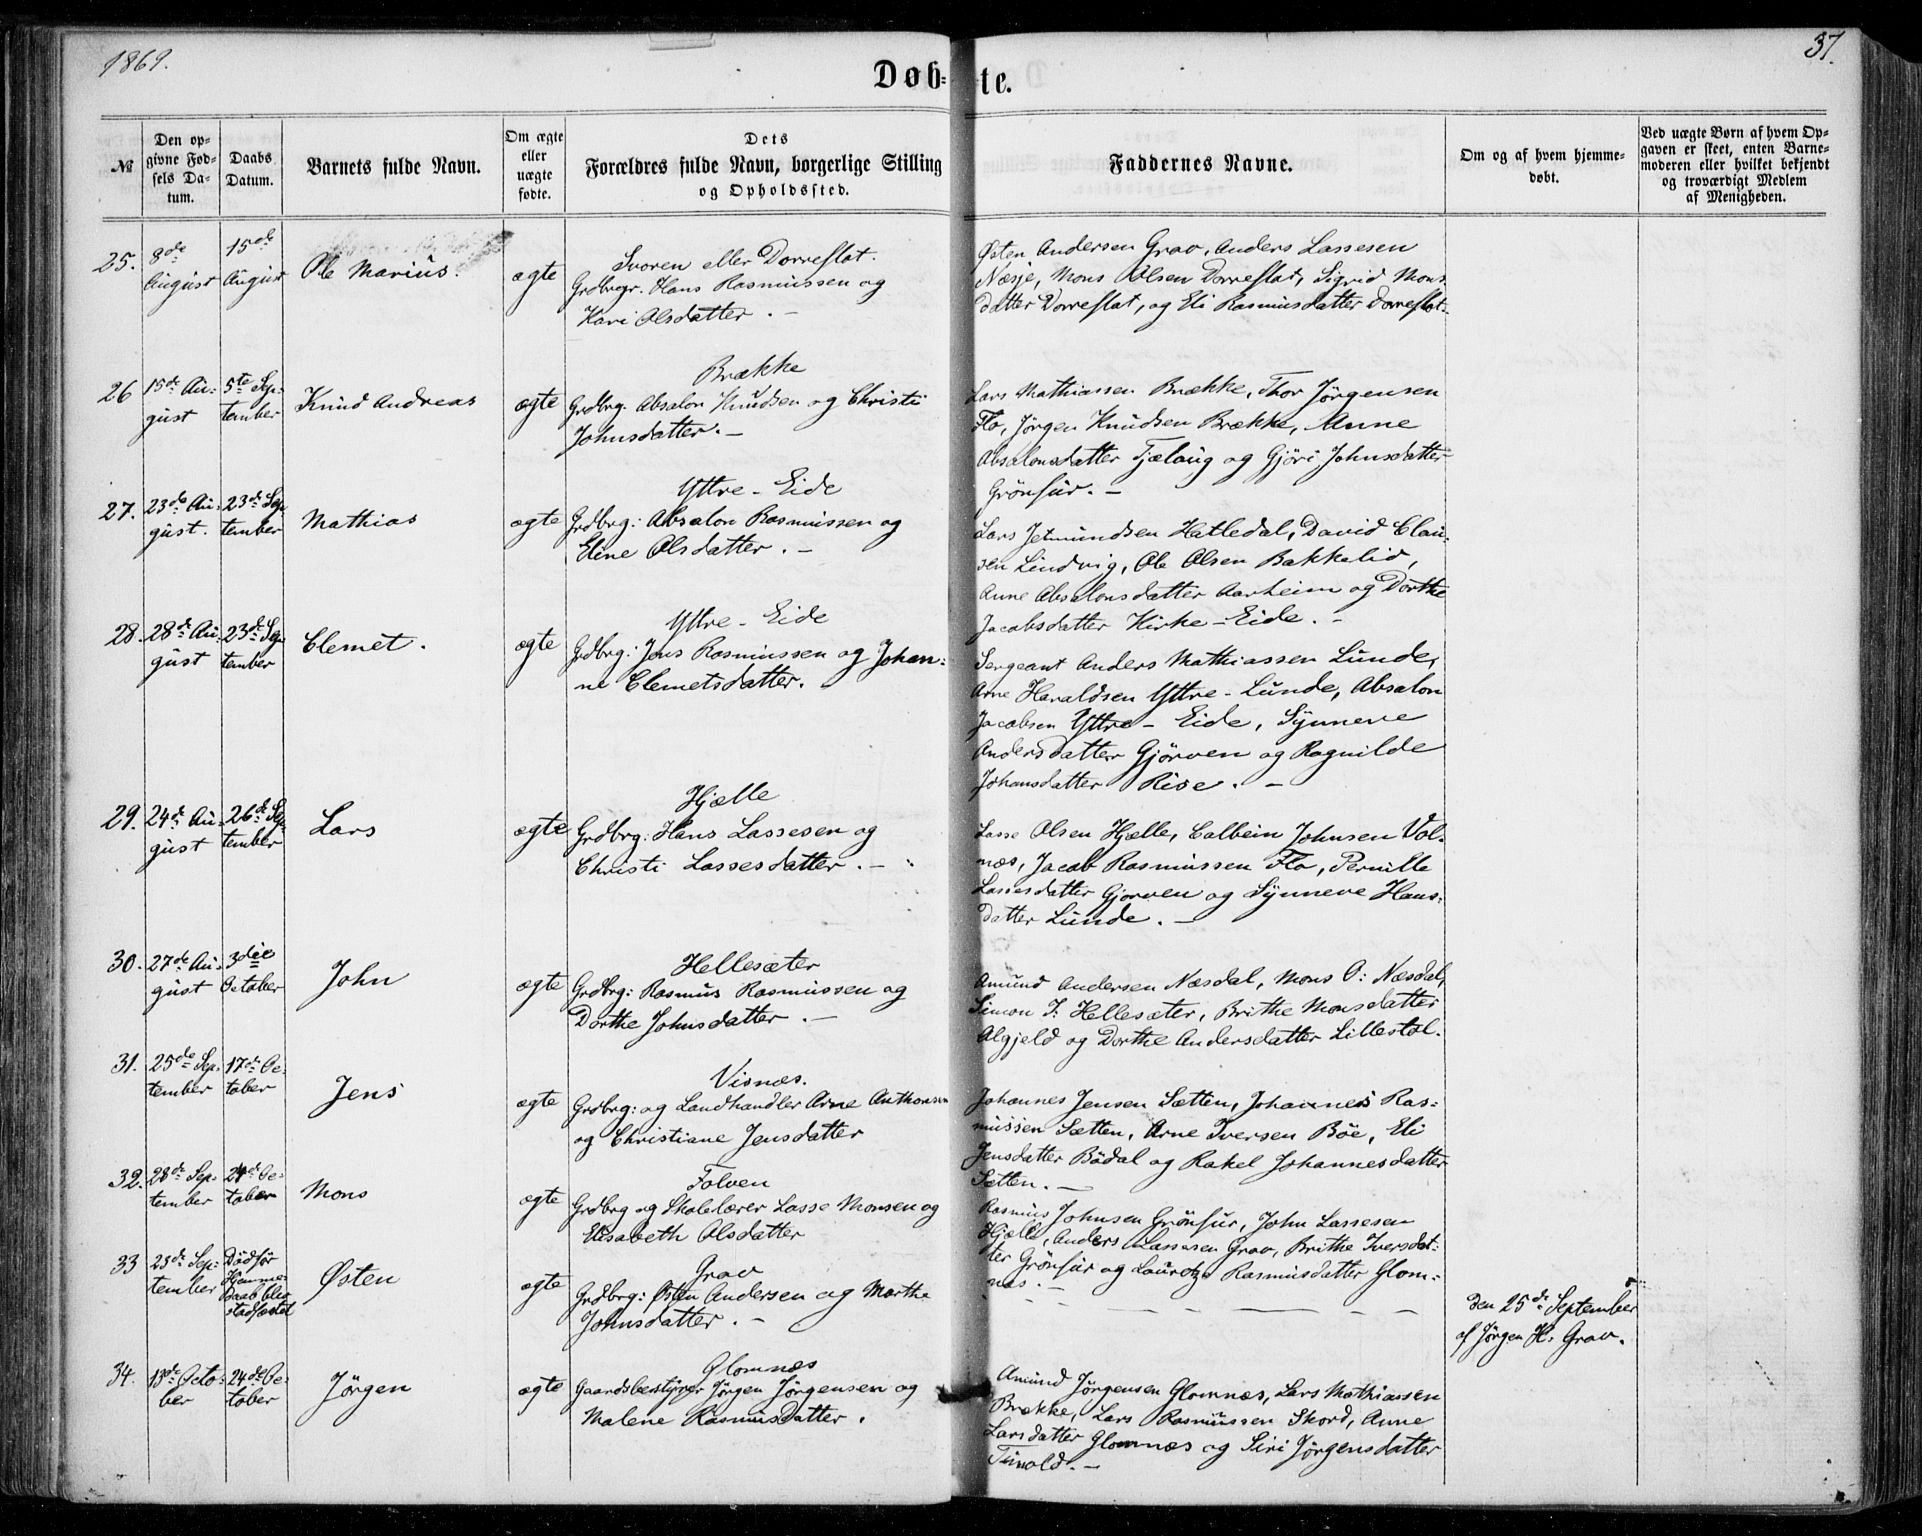 1869.
37.
Døbte.
№
Den opgivne Fødsels Datum.
Daabs Datum.
Barnets fulde Navn.
Om ægte eller uægte fødte.
Dets Forældres fulde Navn, borgerlige Stilling og Opholdssted.
Faddernes Navne.
Om og af hvem hjemmedøbt.
Ved uægte Børn af hvem Opgaven er skeet, enten Barnemoderen eller hvilket bekjendt og troværdigt Medlem af Menigheden.
25. 8de August
15de August
Ole Marius.
ægte
Svoren eller Dorreflot.
Grdbrgr. Hans Rasmussen og
Kari Olsdatter. –
Østen Andersen Grav, Anders Lassesen
Næsje, Mons Olsen Dorreflot, Sigrid Mons
datter Dorreflot, og Eli Rasmusdatter Dorreflot.
26 15de August
5te September
Knud Andreas
ægte
Brække
Grdbrg. Absalon Knudsen og Christi
Johnsdatter. –
Lars Mathiassen Brække, Thor Jörgensen
Flo, Jörgen Knudsen Brække, Anne
Absalonsdatter Tjelaug og Gjöri Johnsdatter
Grönfur. –
27. 23de August.
23de September
Mathias
ægte
Yttre-Eide
Grdbrg: Absalon Rasmussen og
Eline Olsdatter. –
Lars Jetmundsen Hatledal, David Clau-
sen Lindvig, Ole Olsen Bakkelid,
Anne Absalonsdatter Aarheim og Dorthe
Jacobsdatter Kirke-Eide. –
28. 28de August
23de September
Clemet.
ægte
Yttre-Eide
Grdbrg: Jens Rasmussen og Johan-
ne Clemetsdatter.
Sergeant Anders Mathiassen Lunde,
Arne Haraldsen Yttre-Lunde, Absalon
Jacobsen Yttre-Eide, Synneve
Andersdatter Gjörven og Ragnilde
Johansdatter Rise. –
29. 24de August
26de September
Lars
ægte
Hjælle
Grdbrg: Hans Lassesen og
Christi Lassesdatter. –
Lasse Olsen Hjelle, Colbein Johnsen Vol-
næs, Jacob Rasmussen Flo, Pernille
Lassesdatter Gjorven og Synneve Hans-
datter Lunde. –
30. 27de August
3die October
John
ægte
Hellesæter
Grdbrg: Rasmus Rasmussen og
Dorthe Johnsdatter. –
Amund Andersen Næsdal, Mons O: Næsdal,
Simon I: Hellesæter, Brithe Monsdatter
Algjeld og Dorthe Andersdatter Lillestöl.
31. 25de September
17de October
Jens
ægte
Visnæs.
Grdbrg: og Landhandler Arne Anthonsen
og Christiane Jensdatter
Johannes Jensen Sætten, Johannes Ras-
mussen Sætten, Arne Iversen Böe, Eli
Jensdatter Bödal og Rakel Johannesdatter
Sætten. –
32. 28de September
24de October
Mons
ægte
Folven
Grdbrg og Skolelærer Lasse Monsen og
Elisabeth Olsdatter
Rasmus Johnsen Grönfur, John Lassesen
Hjælle, Anders Lassesen Grov, Brithe Iversdat-
ter Grönfur og Lauretze Rasmusdatter Glom-
næs. –
33 25de September
Dödfør Hjemmedaab blev stadfæstet
Østen
ægte
Grav
Grdbrg: Østen Andersen og Marthe
Johnsdatter. –
den 25de September
af Jörgen H: Grav.
34. 13de October
24de October
Jörgen
ægte
Glomnæs
Gaardsbestyrer Jörgen Jörgensen og
Malene Rasmusdatter.
Amund Jörgensen Glomnæs, Lars Mathiassen
Brække, Lars Rasmussen Skord, Anne
Larsdatter Glomnæs og Siri Jörgensdatter
Tunold. –